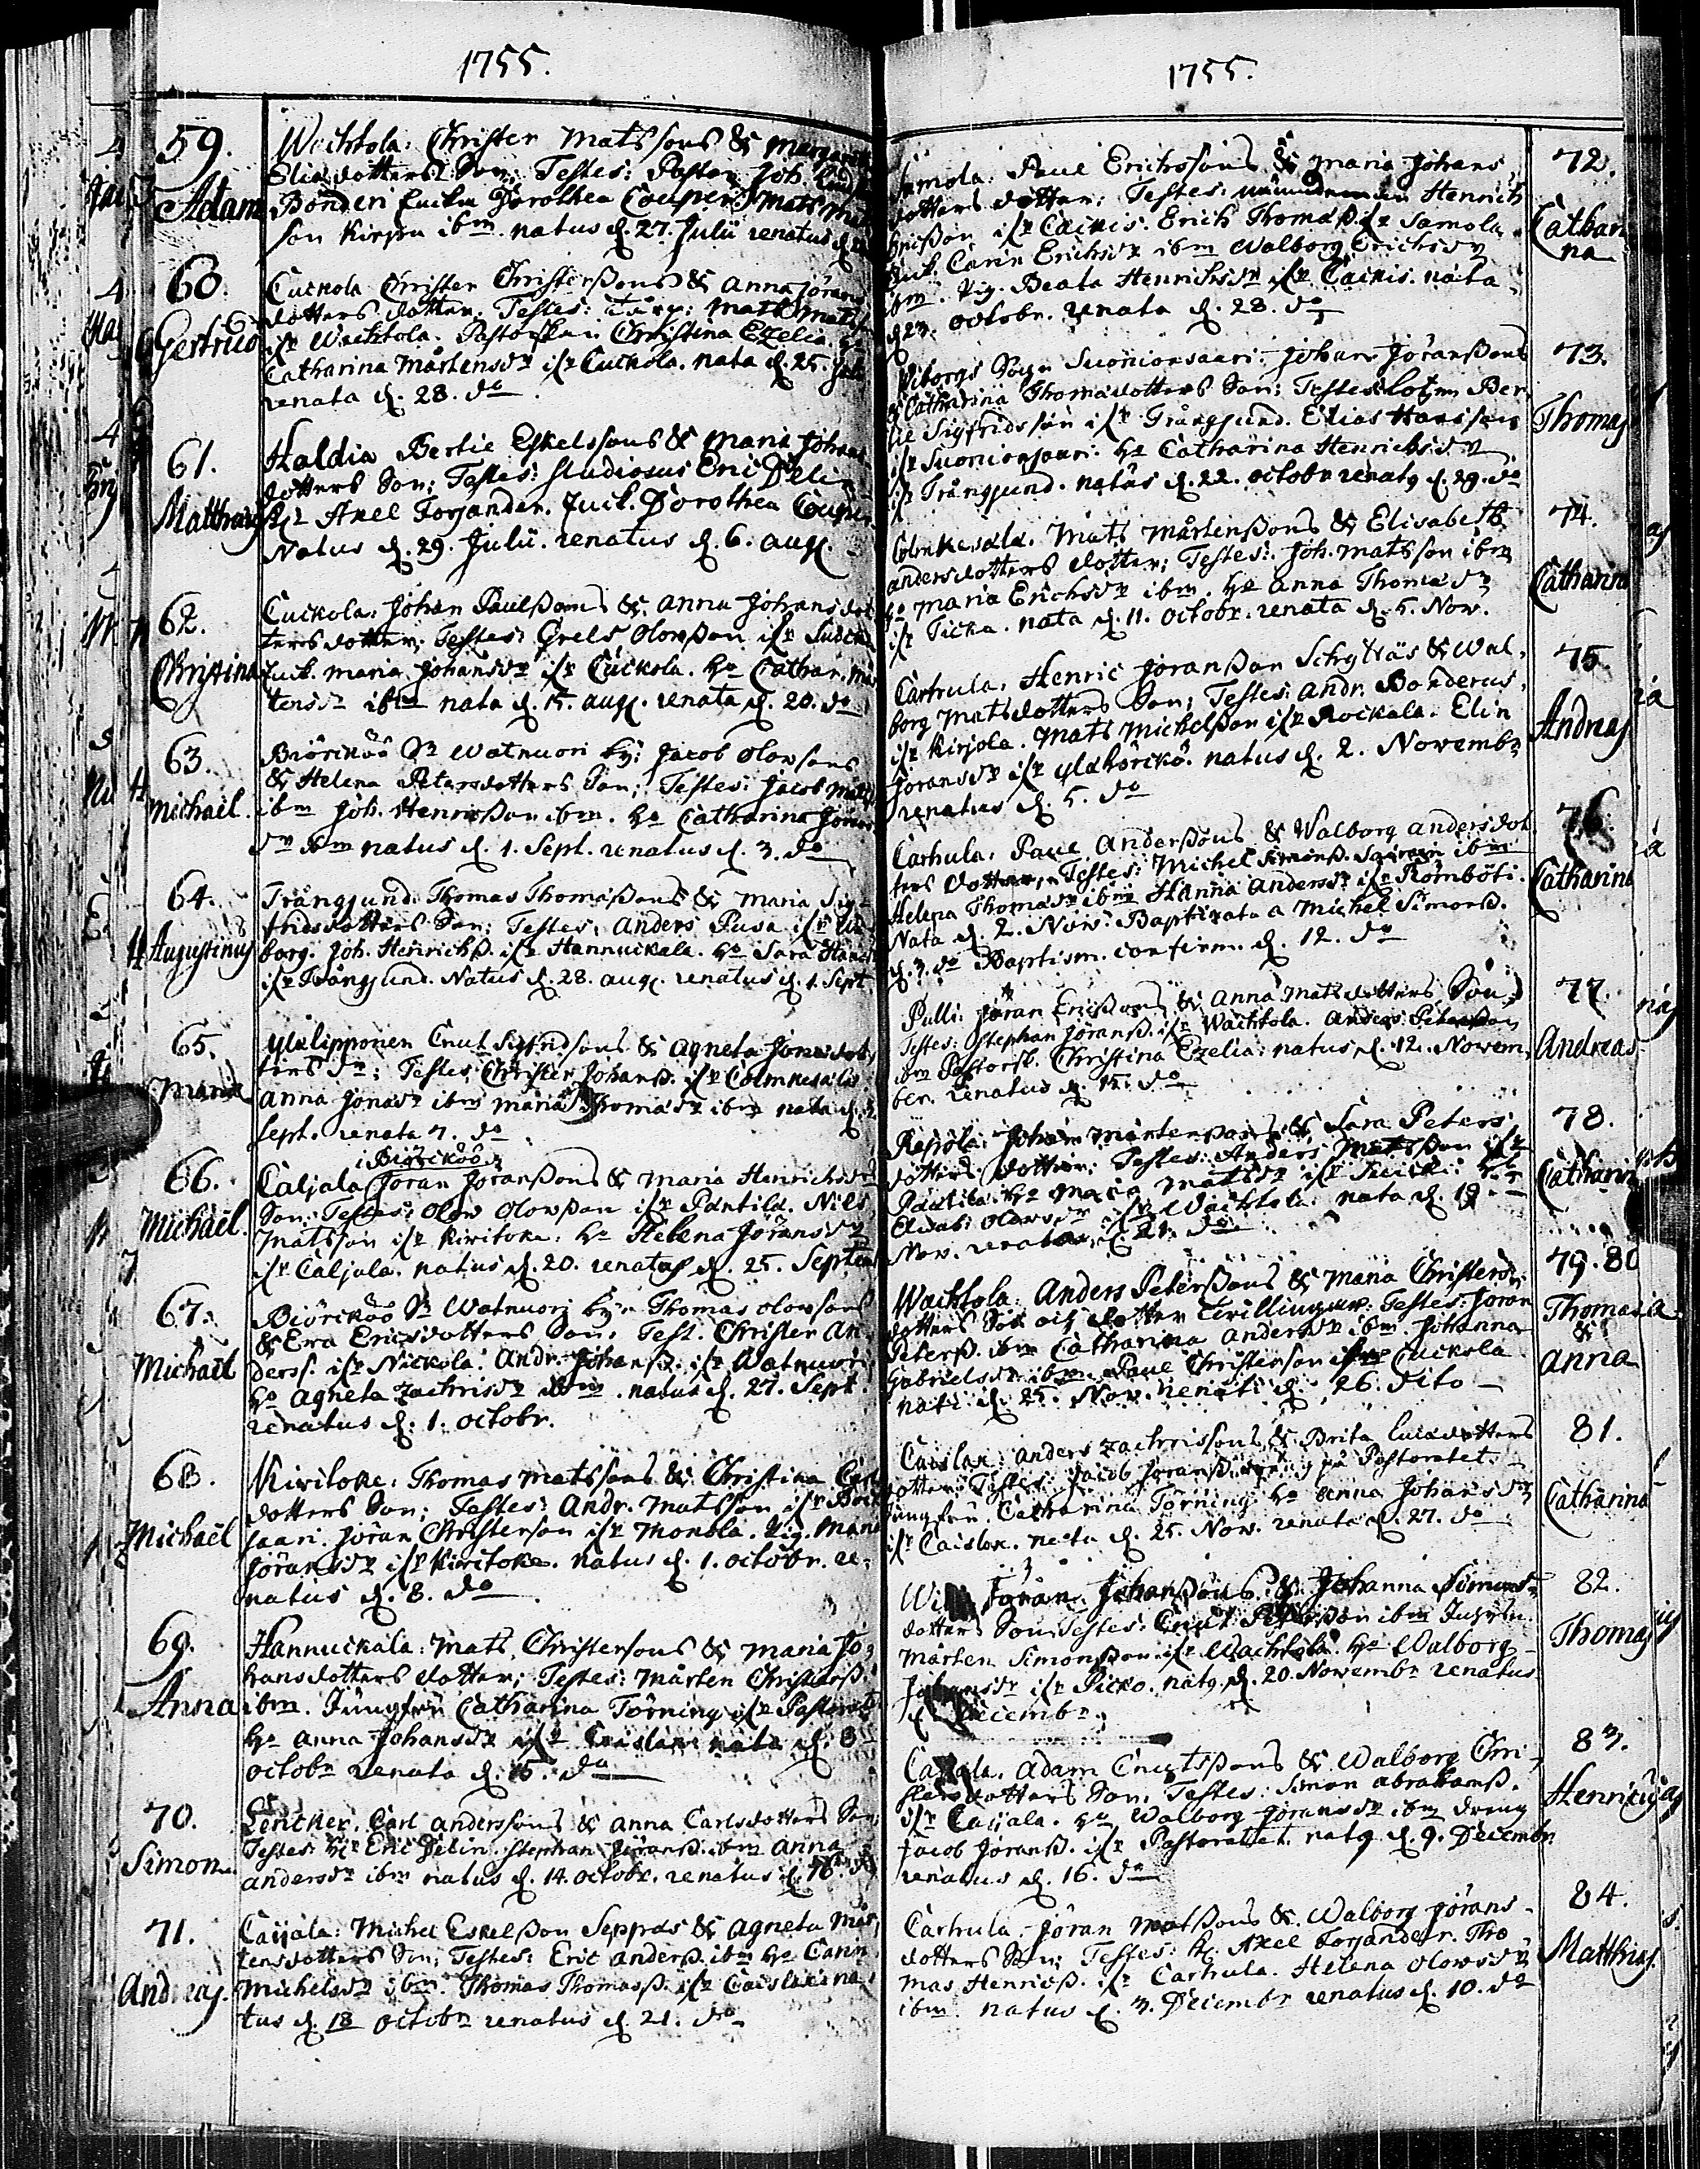 1755.
59.
Adam
Wachtola: Christer Matssons & Margareta
Eliædotters Son; Testes: Pastor Joh.
Bonderi Enka Dorothea Couper. Mats
son Kirpu ibm natus d. 27. Julii renatus d.
60.
Gertrud
Cuckola Christer Christerssons & Anna Jörans
dotters dotter; Testes: Mats Mats
ifr Wachtola. Pastorskan Christina Ezelia. Ho
Catharina Mårtensdr ifr Cuckola. nata d. 25. Julii
renata d. 28. do
61.
Matthæus
Haldia Bertil Eskelssons & Maria Johans
dotters Son; Testes: Studiosus Eric Delin
Axel Forsander. Juck. Dorothea Couper
Natus d. 29. Julii. renatus d. 6. aug.
62.
Christina
Cuckola: Johan Paulssons & Anna Johansdot
ters dotter; Testes: Grels Olowsson ifr
Juck. Maria Johansdr ifr Cuckola. Ho Cathar. Mår
tensdr ibm nata d. 15. aug. renata d. 20. do
63.
Michaël.
Biörcköö Sn Watnuori by: Jacob Olowsons
& Helena Petersdotters Son; Testes: Jacob Mats
ibm Joh. Henrisson ibm. Ho Catharina Jöns
dr ibm natus d. 1. Sept. renatus d. 3. do
64.
Augustinus
Trångsund. Thomas Thomassons & Maria Sig
fridsdotters Son; Testes; Anders Pusa ifr Wi
borg. Joh. Henrichss. ifr Hannuckala. Ho Sara
ifr Trångsund. Natus d. 28. aug. renatus d. 1. Sept
65.
Maria
Yläsipponen Cnut Sigfridsons & Agneta Jönsdot
ters dr; Testes Christer Johanss. ifr Colmkesala
Anna Jönsdr ibm Maria Thomædr ibm nata d. 3.
Sept. renata 7. do
66.
Michaël.
i Biörcköö
Caljala Jöran Joranssons & Maria Henrichsdrs
Son; Testes: Olow Olowsson ifr Pantila. Nils
Matsson ifr Kiritoke: Ho Helena Jöransdr
ifr Caljala. natus d. 20. renatus d. 25. Septem
67.
Michaël
Biörcköö Sn Watnuori by: Thomas Olowsons
& Ewa Ericsdotters Son. Test. Christer An
derss. ifr Nickola. Andr. Johanss. ifr Watnuori
Ho Agneta Zachrisdr ibm. natus d. 27. Sept.
renatus d. 1. octobr.
68.
Michaël
Kiritoke: Thomas Matssons & Christina Carls
dotters Son; Testes: Andr. Matsson ifr
saari. Jöran Christerson ifr Monola. Pig. Maria
Jöransdr ifr Kiritoke. natus d. 1. octobr. re-
natus d. 8. do
69.
Anna
Hannuckala: Mats Christersons & Maria Jo-
hansdotters dotter; Testes: Mårten Christerss
ibm. Jungfru Catharina Törning ifr Pastorat
Ho Anna Johansdr ifr Caislax: nata d. 8
octobr renata d. 15. do
70.
Simon
Lencker. Carl Anderssons & Anna Carlsdotters Son
Testes: Hr Eric Delin. Stephan Joranss. ibm Anna
Andersdr ibm natus d. 14. octobr. renatus d. 16. do
71.
Andreas.
Caijala: Michel Eskelsson Sepprds & Agneta Mår
tensdotters Son; Testes: Eric Anderss. ibm Ho Carin
Michelsdr ibm. Thomas Thomass. ifr Caislax: na
tus d. 18 octobr renatus d. 21. do
1755.
72.
Cathari
na
Samola. Paul Erichssons & Maria Johans
dotters dotter; Testes: Henrich
Erichsson ifr Cackis. Erich Thomass ifr Samola.
Juck. Carin Erichsdr ibm Walborg Erichsdr
ibm. Pig. Beata Henrichsdr ifr Cackis. nata
d 23. octobr. renata d. 28. do
73.
Thomas
Wiborgs Sogn Suonionsaari. Johan Jöranssons
& Catharina Thomædotters Son; Testes: Lotsm Ber
til Sigfridsson ifr Trångsund. Elias Hansson
ifr Suonionsaari. Ho Catharina Henrichsdr
ifr Trångsund. natus d. 22. octobr renatg d. 29. do
74.
Catharina
Colmkesala. Mats Mårtenssons & Elisabeth
Andersdotters dotter; Testes: Joh. Matsson ibm
Ho Maria Erichsdr ibm. Ho Anna Thomædr
ifr Ticka. nata d. 11. octobr. renata d. 5. Nov.
75.
Andreas
Carhula, Henric Joransson Schyttäs & Wal-
borg Matsdotters Son; Testes: Andr. Bonderus
ifr Kirjola. Mats Michelsson ifr Rockala. Elin
Joransdr ifr Yläkörckö. natus d. 2. Novembr
renatus d. 5. do
76.
Catharina
Carhula, Paul Anderssons & Walborg Andersdot
ters dotter, Testes: Michel Simonss. ibm
Helena Thomædr ibm Hanna Andersdr ifr Romböti.
Nata d. 2. Nov. Baptizata a Michel Simonss.
d. 3. do Baptism. confirm. d. 12. do
77.
Andreas
Pulli: Jöran Erissons & Anna Matsdotters Son
Testes: Stephan Jöranss. ifr Wachtola. Anders Petersson
ibm Pastorsk. Christina Ezelia: natus d. 12. Novem-
ber. renatus d. 15. do
78.
Catharina
Repola: Johan Mårtenssons & Sara Peters
dotters dotter: Testes: Anders Matsson ifr
Pantila. Ho Maria Matsdr ifr
Elisab: Olowsdr ifr Wachtola. nata d. 19.
Nov. renata d. 21. do
79. 80
Thomas
&
Anna
Wachtola: Anders Peterssons & Maria Christers
dotters Son och dotter Twillingar. Testes: Joran
Peterss. ibm Catharina Andersdr ibm. Johanna
Gabrielsdr ibm. Paul Christerson ifr Cuckola
nati d. 25. Nov. renati d. 26. dito
81.
Catharina
Caislax: Anders Zachrissons & Brita Lucædotters
dotter: Testes: Jacob Joranss. på Pastoratet.
Jungfru Catharina Törning Ho Anna Johansdr
ifr Caislax. nata d. 25. Nov. renata d. 27. do
82.
Thomas
Jöran Johanssons & Johanna Simons
dotters Son. Testes: Cnut Petersson ibm
Mårten Simonsson ifr Wachtola. Ho Walborg
Johansdr ifr Picko. natg. d. 20. Novembr renatus
d. Decembr.
83.
Henricus
Adam Cnutssons & Walborg Chri-
stersdotters Son, Testes: Simon Abrahamss.
ifr Caijala. Ho Walborg Joransdr ibm dreng
Jacob Joranss. ifr Pastoratet. natg d. 9. Decembr.
renatus d. 16. do
84.
Matthias.
Carhula. Jöran Matssons & Walborg Jörans-
dotters Son; Testes: Axel Forsander. Tho
mas Henrikss. ifr Carhula. Helena Olowsdr
ibm. natus d. 3. Decembr renatus d. 10. do